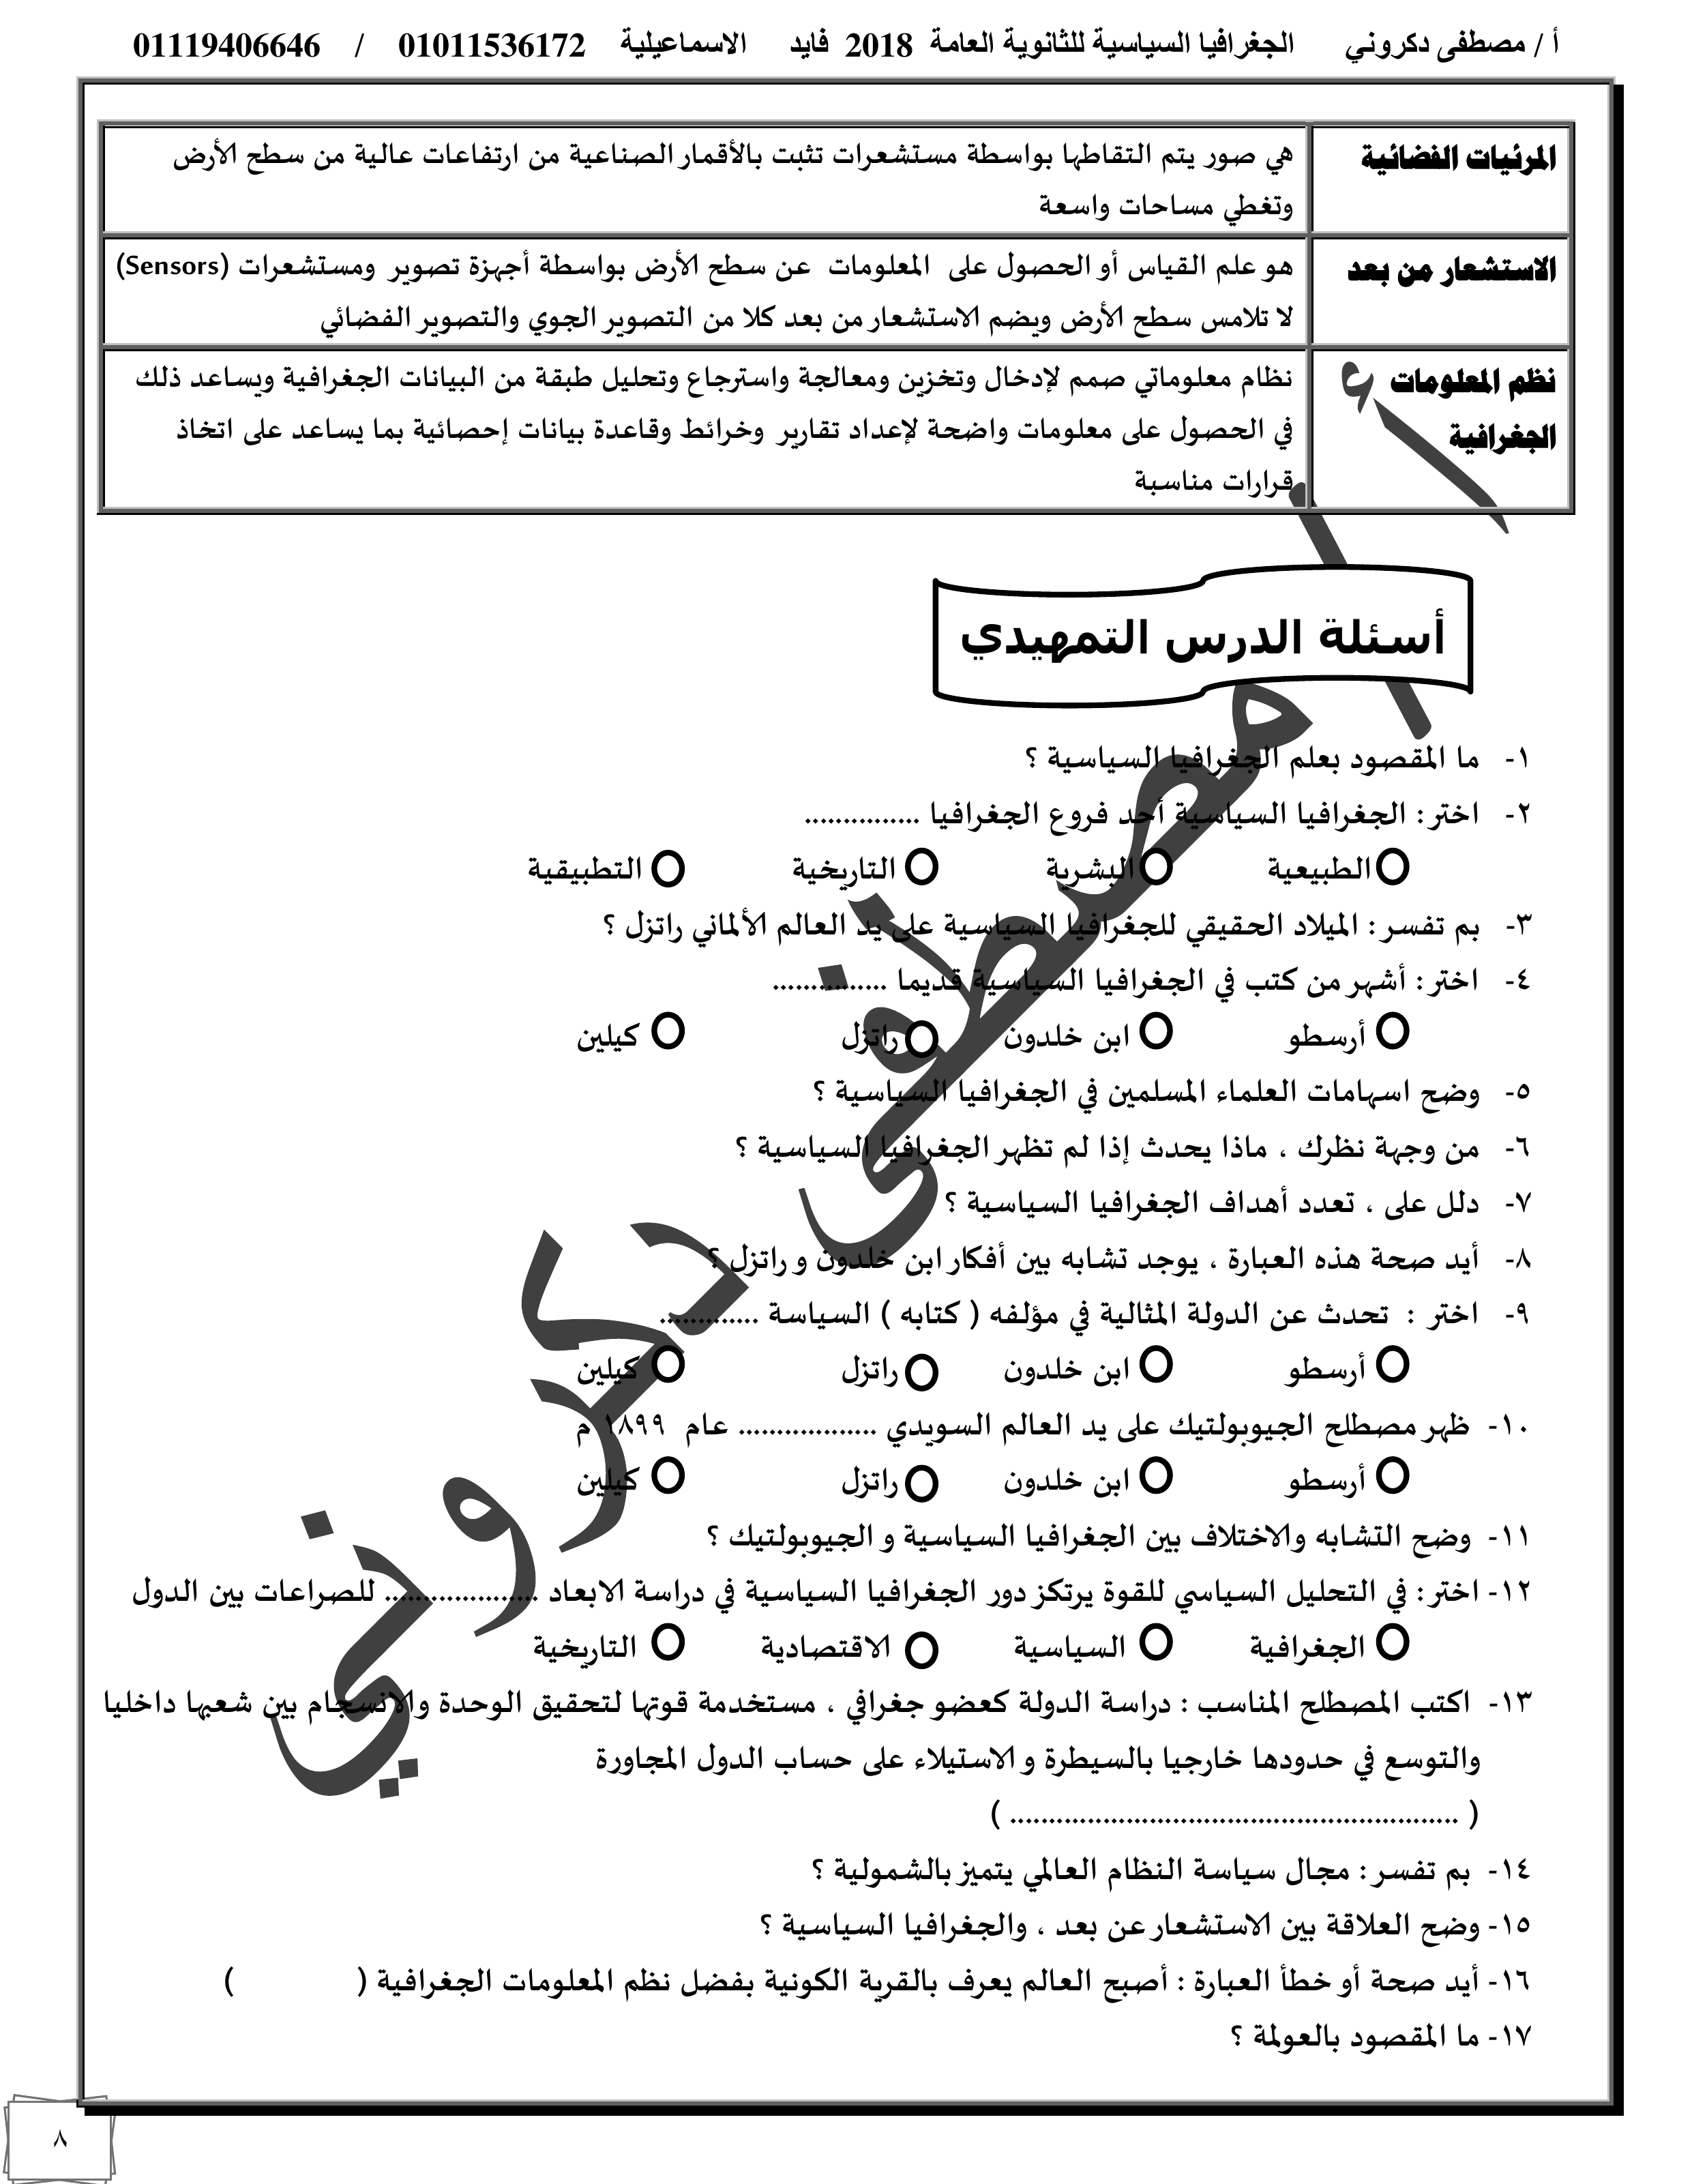 أ / مصطفى دكروني الجغرافيا السياسية للثانوية العامة 2018 فايد الاسماعيلية 01011536172 / 01119406646
المرئيات الفضائية
هي صور يتم التقاطها بواسطة مستشعرات تثبت بالأقمار الصناعية من ارتفاعات عالية من سطح الأرض
وتغطي مساحات واسعة
الاستشعار من بعد
هو علم القياس أو الحصول على المعلومات عن سطح الأرض بواسطة أجهزة تصوير ومستشعرات (Sensors)
لا تلامس سطح الأرض ويضم الاستشعار من بعد كلا من التصوير الجوي والتصوير الفضائي
نظم المعلومات
الجغرافية
نظام معلوماتي صمم لإدخال وتخزين ومعالجة واسترجاع وتحليل طبقة من البيانات الجغرافية ويساعد ذلك
في الحصول على معلومات واضحة لإعداد تقارير وخرائط وقاعدة بيانات إحصائية بما يساعد على اتخاذ
قرارات مناسبة
أسئلة الدرس التمهيدي
١- ما المقصود بعلم الجغرافيا السياسية ؟
٢- اختر : الجغرافيا السياسية أحد فروع الجغرافيا ...............
الطبيعية البشرية التاريخية التطبيقية
٣- بم تفسر : الميلاد الحقيقي للجغرافيا السياسية على يد العالم الألماني راتزل ؟
٤- اختر : أشهر من كتب في الجغرافيا السياسية قديما ...............
أرسطو ابن خلدون راتزل كيلين
٥- وضح اسهامات العلماء المسلمين في الجغرافيا السياسية ؟
٦- من وجهة نظرك ، ماذا يحدث إذا لم تظهر الجغرافيا السياسية ؟
٧- دلل على ، تعدد أهداف الجغرافيا السياسية ؟
٨- أيد صحة هذه العبارة ، يوجد تشابه بين أفكار ابن خلدون و راتزل ؟
٩- اختر : تحدث عن الدولة المثالية في مؤلفه ( كتابه ) السياسة .............
أرسطو ابن خلدون راتزل كيلين
١٠- ظهر مصطلح الجيوبولتيك على يد العالم السويدي .................. عام ١٨٩٩ م
أرسطو ابن خلدون راتزل كيلين
١١- وضح التشابه والاختلاف بين الجغرافيا السياسية و الجيوبولتيك ؟
١٢- اختر : في التحليل السياسي للقوة يرتكز دور الجغرافيا السياسية في دراسة الابعاد .................... للصراعات بين الدول
الجغرافية السياسية الاقتصادية التاريخية
١٣- اكتب المصطلح المناسب : دراسة الدولة كعضو جغرافي ، مستخدمة قوتها لتحقيق الوحدة والانسجام بين شعبها داخليا
والتوسع في حدودها خارجيا بالسيطرة و الاستيلاء على حساب الدول المجاورة
( .......................................................... )
١٤- بم تفسر : مجال سياسة النظام العالمي يتميز بالشمولية ؟
١٥- وضح العلاقة بين الاستشعار عن بعد ، والجغرافيا السياسية ؟
١٦- أيد صحة أو خطأ العبارة : أصبح العالم يعرف بالقرية الكونية بفضل نظم المعلومات الجغرافية ( )
١٧- ما المقصود بالعولمة ؟
أ / مصطفى دكروني
٨